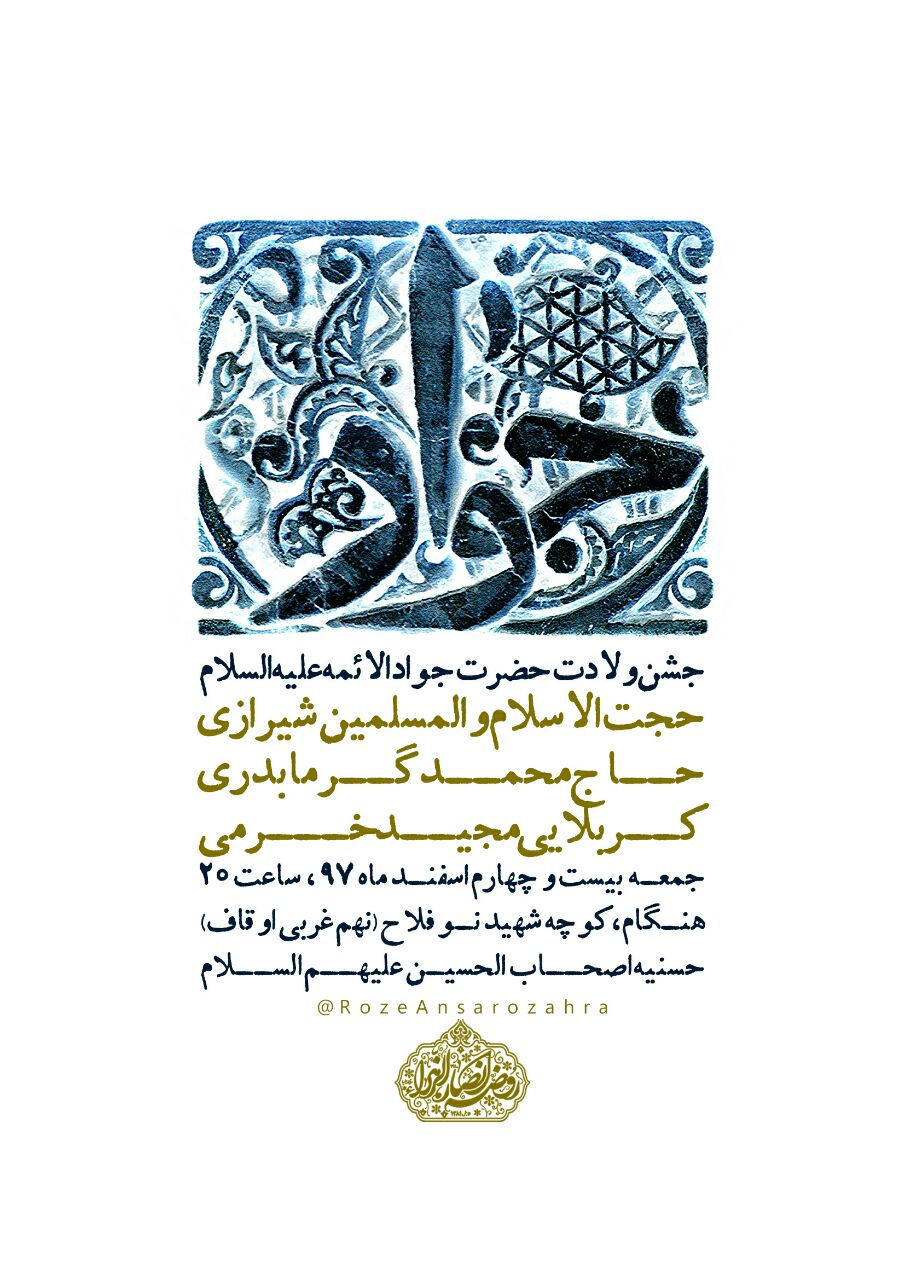 جواد
جشن ولادت حضرت جوادالائمه علیه السلام
حجت الاسلام و المسلمین شیرازی
حاج محمد گرمابدری
کربلایی مجید خرمی
جمعه بیست و چهارم اسفند ماه ۹۷، ساعت ۲۰
هنگام، کوچه شهید نوفلاح (نهم غربی اوقاف)
حسنیه اصحاب الحسین علیهم السلام
@RozeAnsarozahra
روضه انصار الزهراء